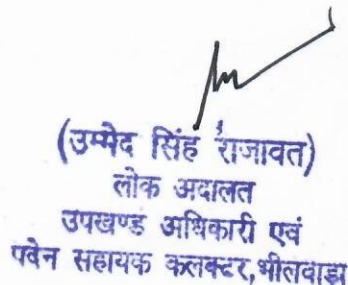 (उम्मेद सिंह राजावत)
लोक अदालत
उपखण्ड अधिकारी एवं
पवेन सहायक कलक्टर, भीलवाड़ा